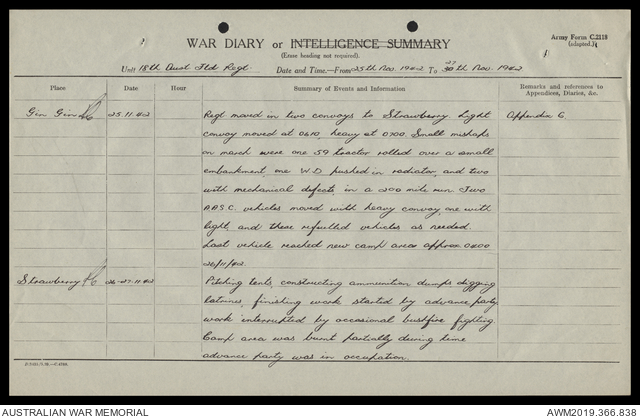 WAR DIARY or INTELLIGENCE SUMMARY
Army Form C.2118
(adapted.)
(Erase heading not required).
Unit 18th Aust Fld Regt. Date and Time.—From 25th Nov. 1942 To 27 30th Nov. 1942
Place Date Hour Summary of Events and Information Remarks and references to
Appendices, Diaries, &c.
Gin Gin 25.11.42 Regt moved in two convoys to Strawberry. Light Appendix 6
convoy moved at 0610, heavy at 0700. Small mishaps
on march were one 59 tractor rolled over a small
embankment, one W.D pushed in radiator, and two
with mechanical defects, in a 200 mile run. Two
A.A.S.C. vehicles moved with heavy convoy, one with
light, and these refuelled vehicles as needed.
Last vehicle reached new camp area approx 0400
26/11/42.
Strawberry 26-27.11.42 Pitching tents, constructing ammunition dumps digging
latrines, finishing work started by advance party
work interrupted by occasional bushfire fighting.
Camp area was burnt partially during time
advance party was in occupation.
AUSTRALIAN WAR MEMORIAL AWM2019.366.838